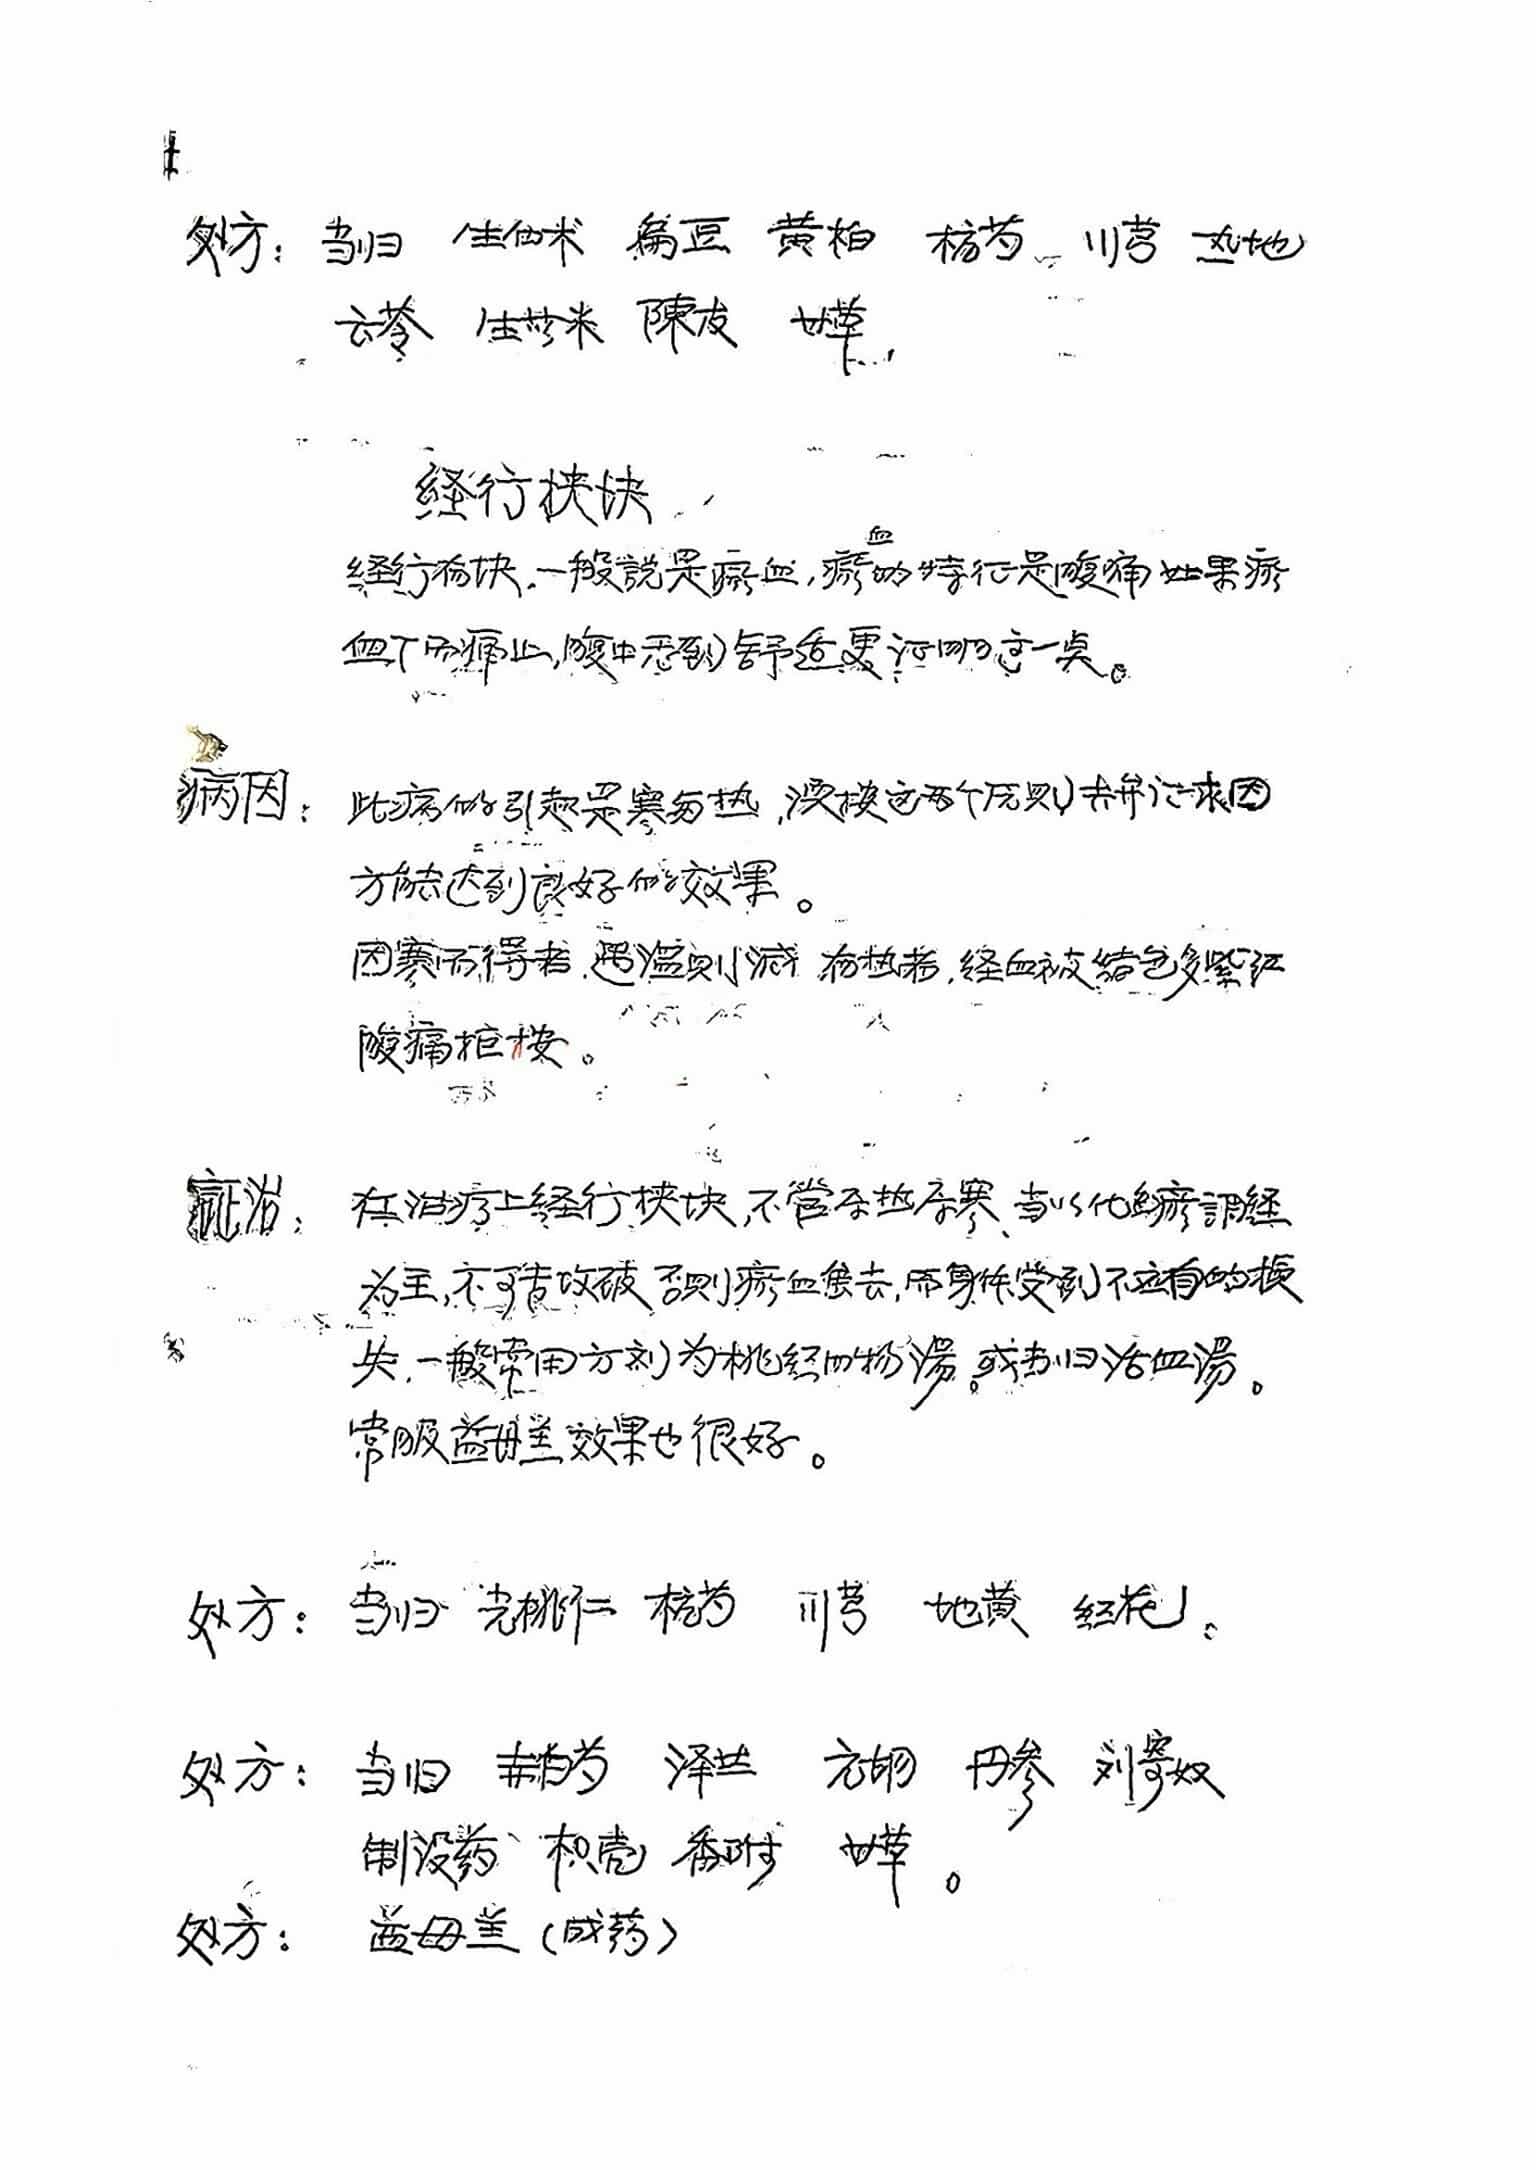 处方：当归 生仙术 扁豆 黄柏 杭芍 川芎 熟地
云苓 生苡米 陳皮 甘草
経行挟块
経行有块.一般説是瘀血,瘀血的特征是腹痛如果瘀
血下而痛止,腹中感到舒适更证明这一点。
病因：此病的引起是寒与热,须按这两个原则去辨证求因
方能达到良好的效果。
因寒而得者.遇温则减 有热者,経血被结色多紫红
腹痛拒按。
症治：在治疗上経行挟块,不管属热属寒、当以化瘀調経
为主,不可妄攻破 否则瘀血虽去,而身体受到不应有的损
失.一般常用方剂为桃红四物湯。或当归活血湯。
常服益母兰效果也很好。
处方：当归 光桃仁 杭芍 川芎 地黄 红花
处方：当归 赤白芍 泽兰 元胡 丹参 刘寄奴
制没药 枳壳 香附 甘草。
处方：益母兰（成药）